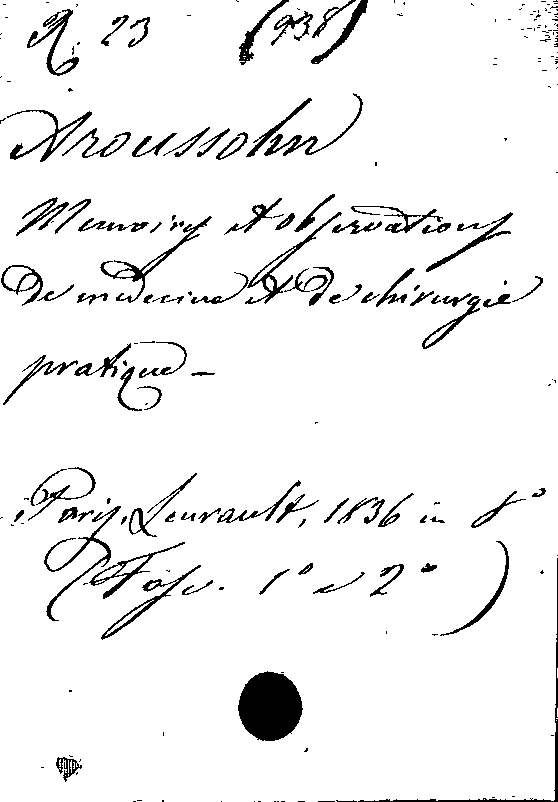 R. 23 (938)
Aroussohn
Memoires et observations
de medecine et de chirurgie
pratique –
Paris, Leurault, 1836 in 8°
(Fasc. 1° e 2°)